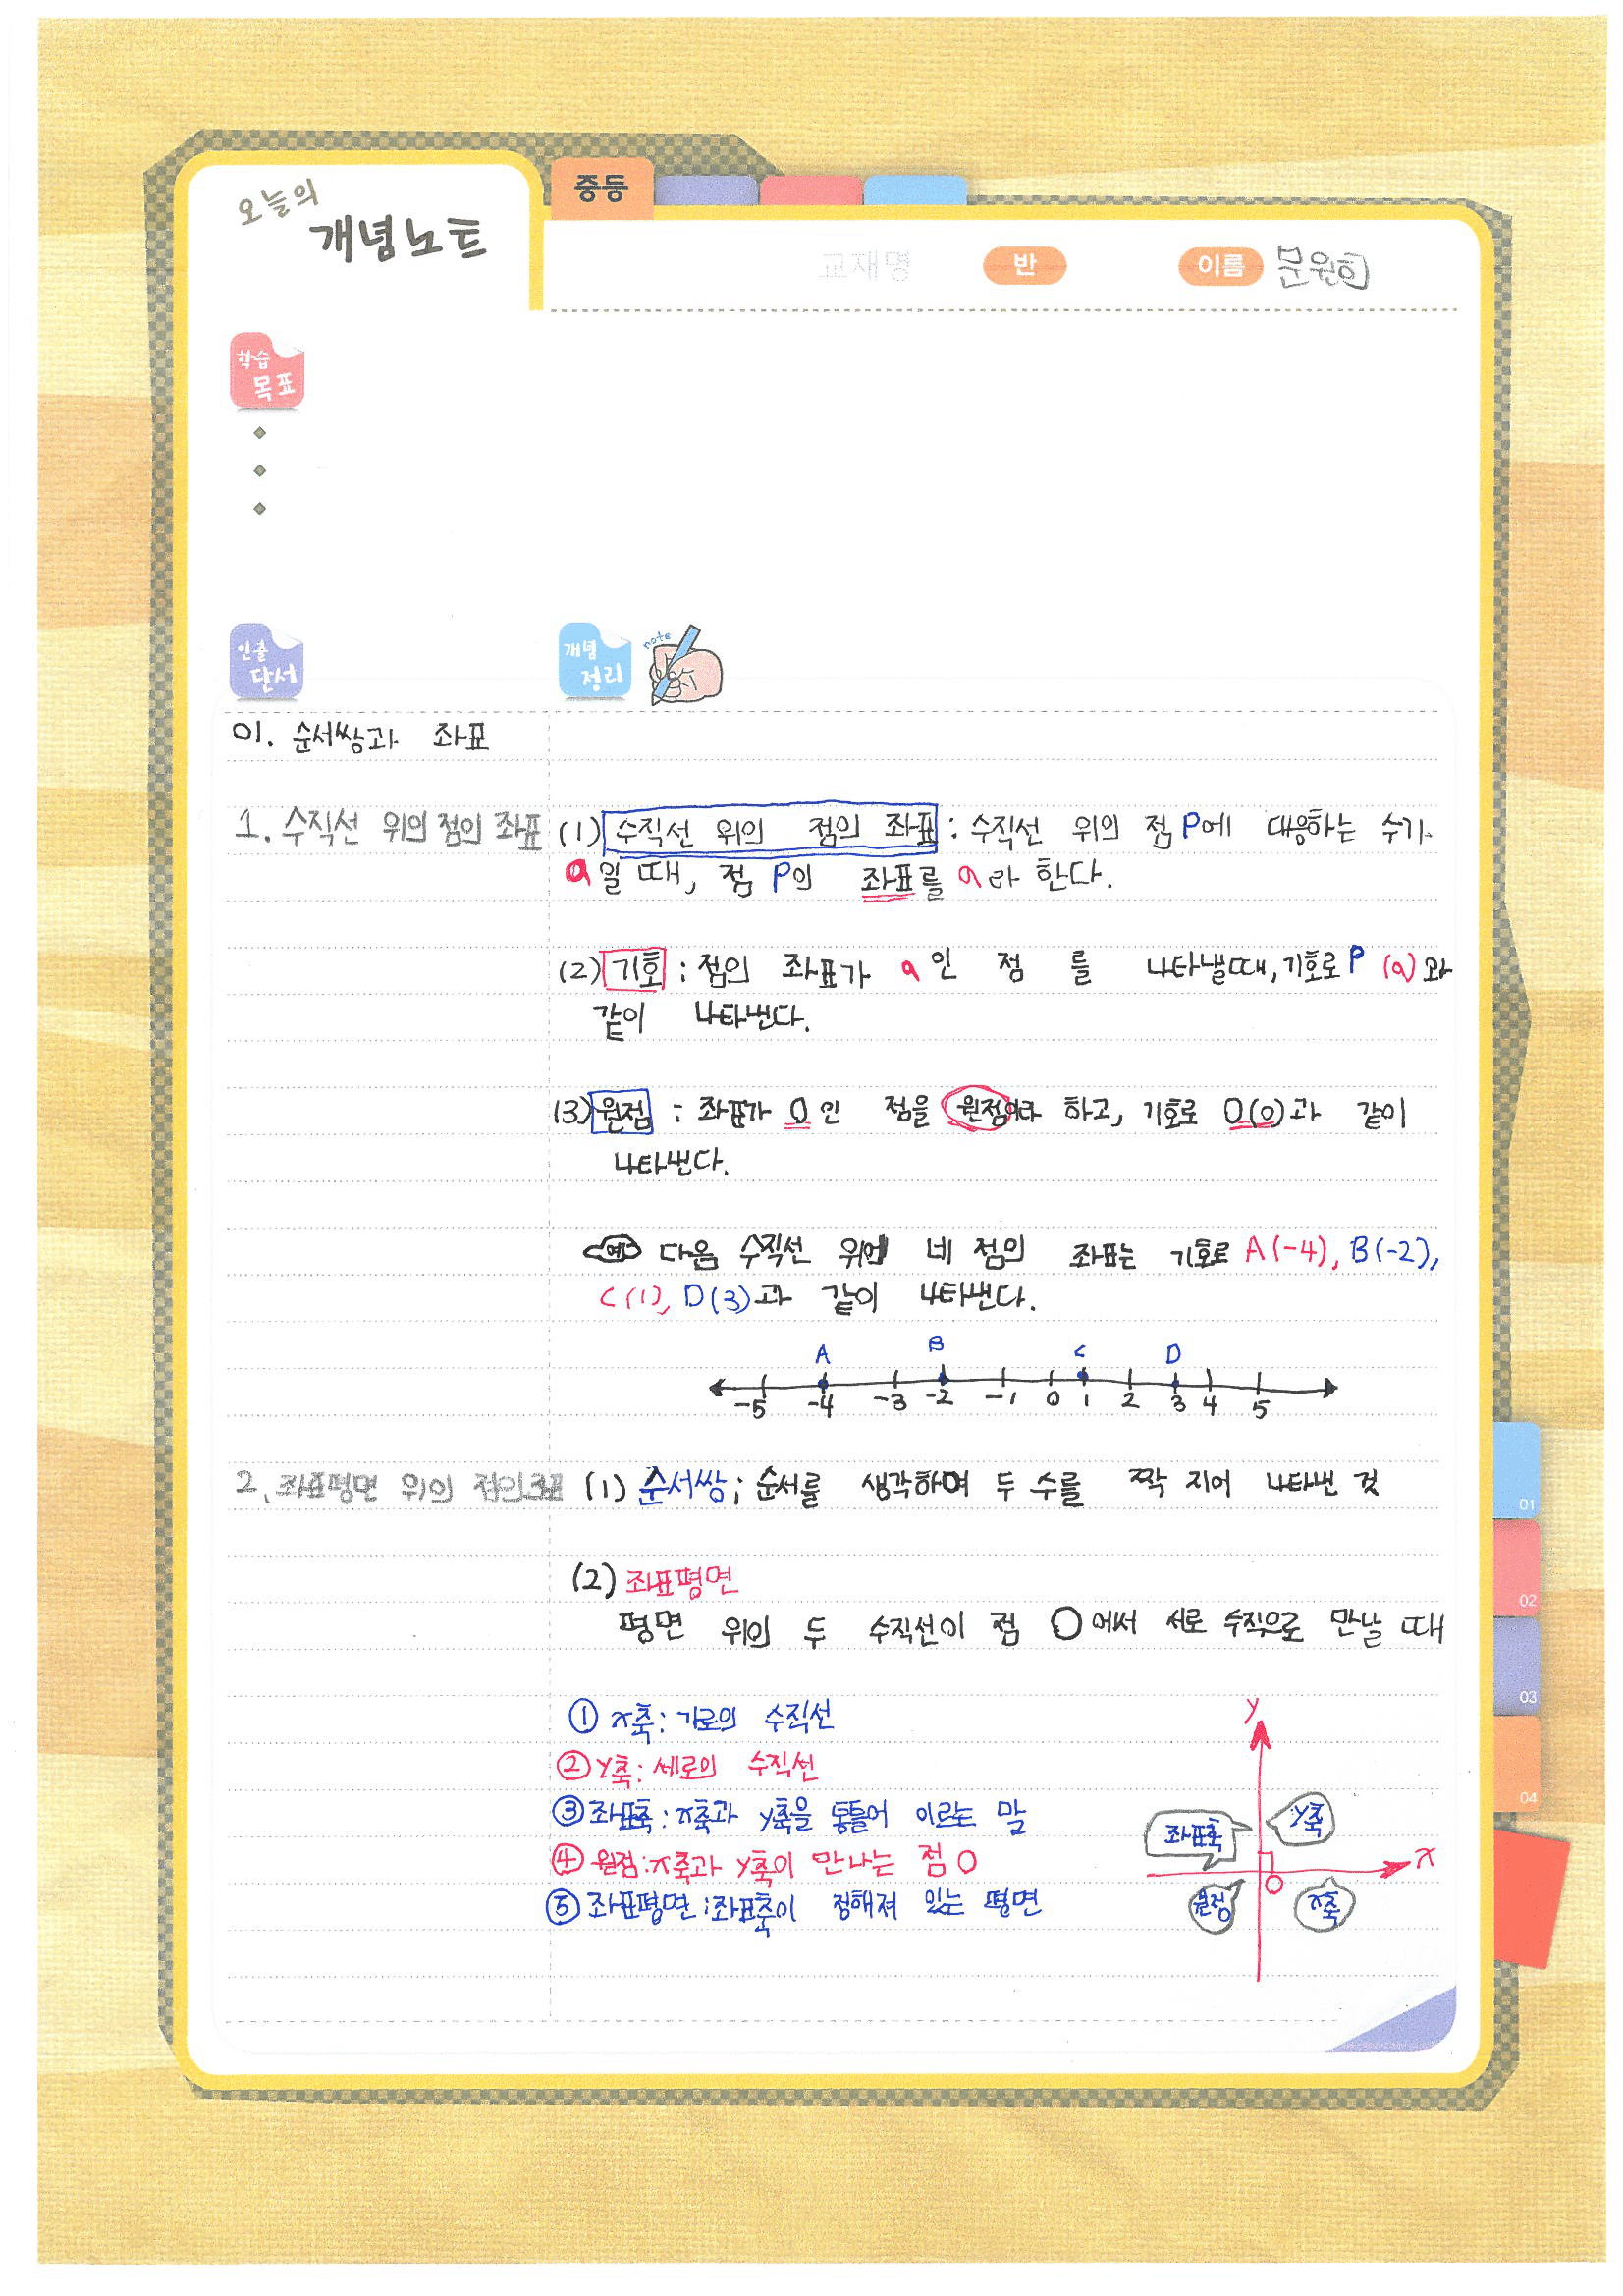 오늘의
개념노트
중등
교재명 반 이름 문원희
학습
목표
인출
단서
개념
정리
note
01. 순서쌍과 좌표
1. 수직선 위의 점의 좌표 (1) 수직선 위의 점의 좌표 : 수직선 위의 점 P에 대응하는 수가
a일 때, 점 P의 좌표를 a라 한다.
(2) 기호 : 점의 좌표가 a인 점 를 나타낼때, 기호로 P (a)와
같이 나타낸다.
(3) 원점 : 좌표가 0인 점을 원점이라 하고, 기호로 O(0)과 같이
나타낸다.
예 다음 수직선 위에 네 점의 좌표는 기호로 A(-4), B(-2),
C(1), D(3)과 같이 나타낸다.
A B C D
-5 -4 -3 -2 -1 0 1 2 3 4 5
2. 좌표평면 위의 점의좌표 (1) 순서쌍; 순서를 생각하여 두 수를 짝 지어 나타낸 것
(2) 좌표평면
평면 위의 두 수직선이 점 O에서 서로 수직으로 만날 때
① x축: 가로의 수직선
② y축: 세로의 수직선
③ 좌표축: x축과 y축을 통틀어 이르는 말
④ 원점: x축과 y축이 만나는 점 O
⑤ 좌표평면: 좌표축이 정해져 있는 평면
y
좌표축 y축
x
O
원점 x축
01
02
03
04